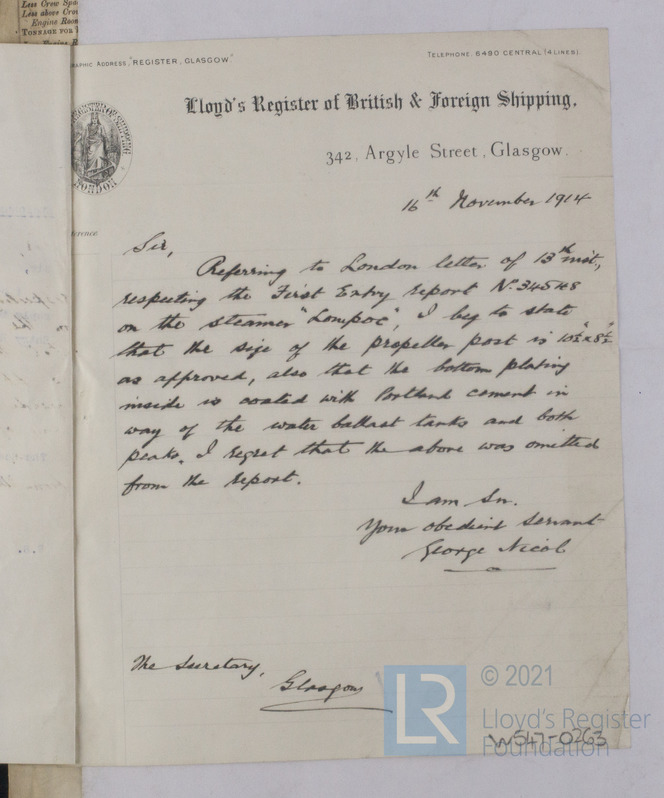 Less Crew Spa
Less above Crow
Engine Room
TONNAGE FOR
GRAPHIC ADDRESS, "REGISTER, GLASGOW"
TELEPHONE, 6490 CENTRAL (4 LINES).
Lloyd's Register of British & Foreign Shipping,
342, Argyle Street, Glasgow.
LONDON
ference
16th November 1914
Sir,
Referring to London letter of 13th inst,
respecting the First Entry report No. 34548
on the steamer "Lompoc", I beg to state
that the size of the propeller post is 10½" x 8½"
as approved, also that the bottom plating
inside is coated with Portland cement in
way of the water ballast tanks and both
peaks. I regret that the above was omitted
from the report.
I am Sir.
Your obedient servant
George Nicol
The Secretary,
Glasgow
LR
© 2021
Lloyd's Register
Foundation
W547-0263